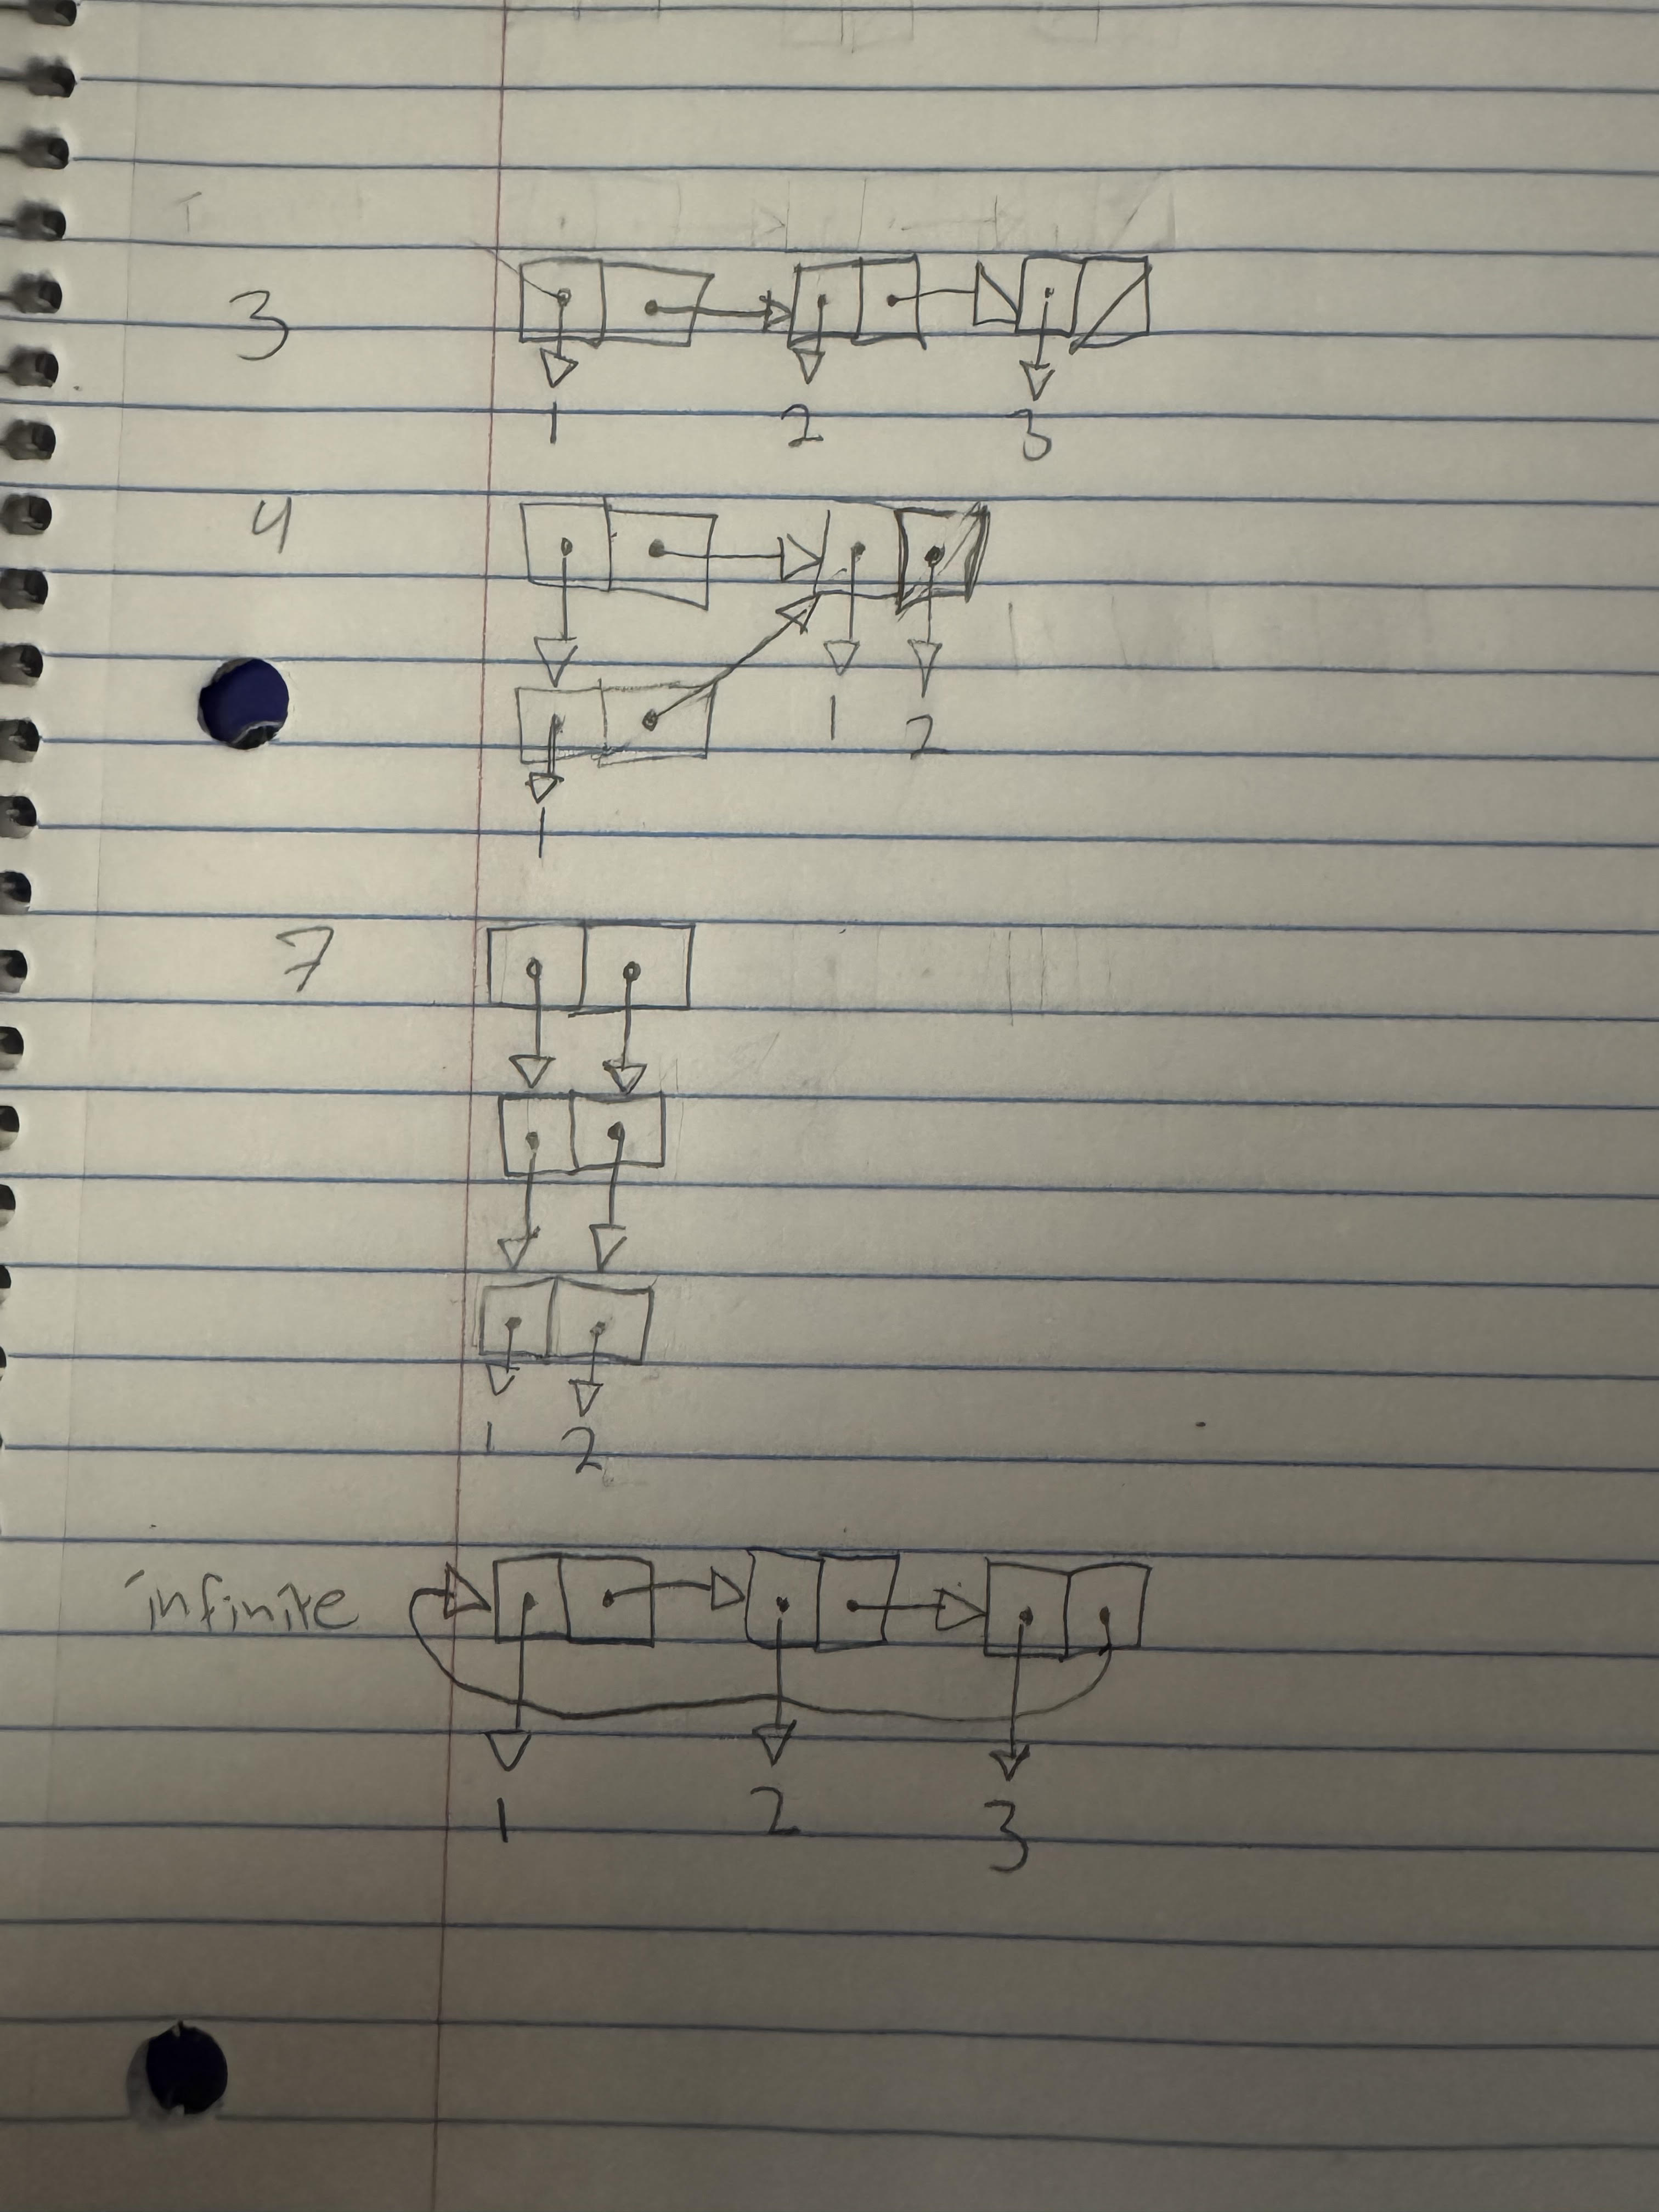 3
1 2 3
4
1 2
1
7
1 2
infinite
1 2 3